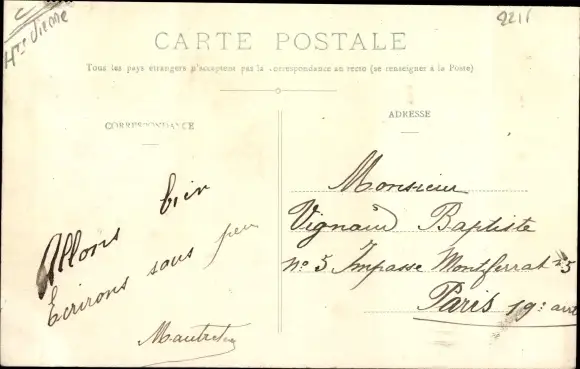 Hte Vienne
2211
CARTE POSTALE
Tous les pays étrangers n'acceptent pas la correspondance au recto (se renseigner à la Poste)
CORRESPONDANCE
ADRESSE
Allons bien
Ecrirons sous peu
Monsieur
Vignaud Baptiste
No 5 Impasse Montferrat 5
Paris 19: